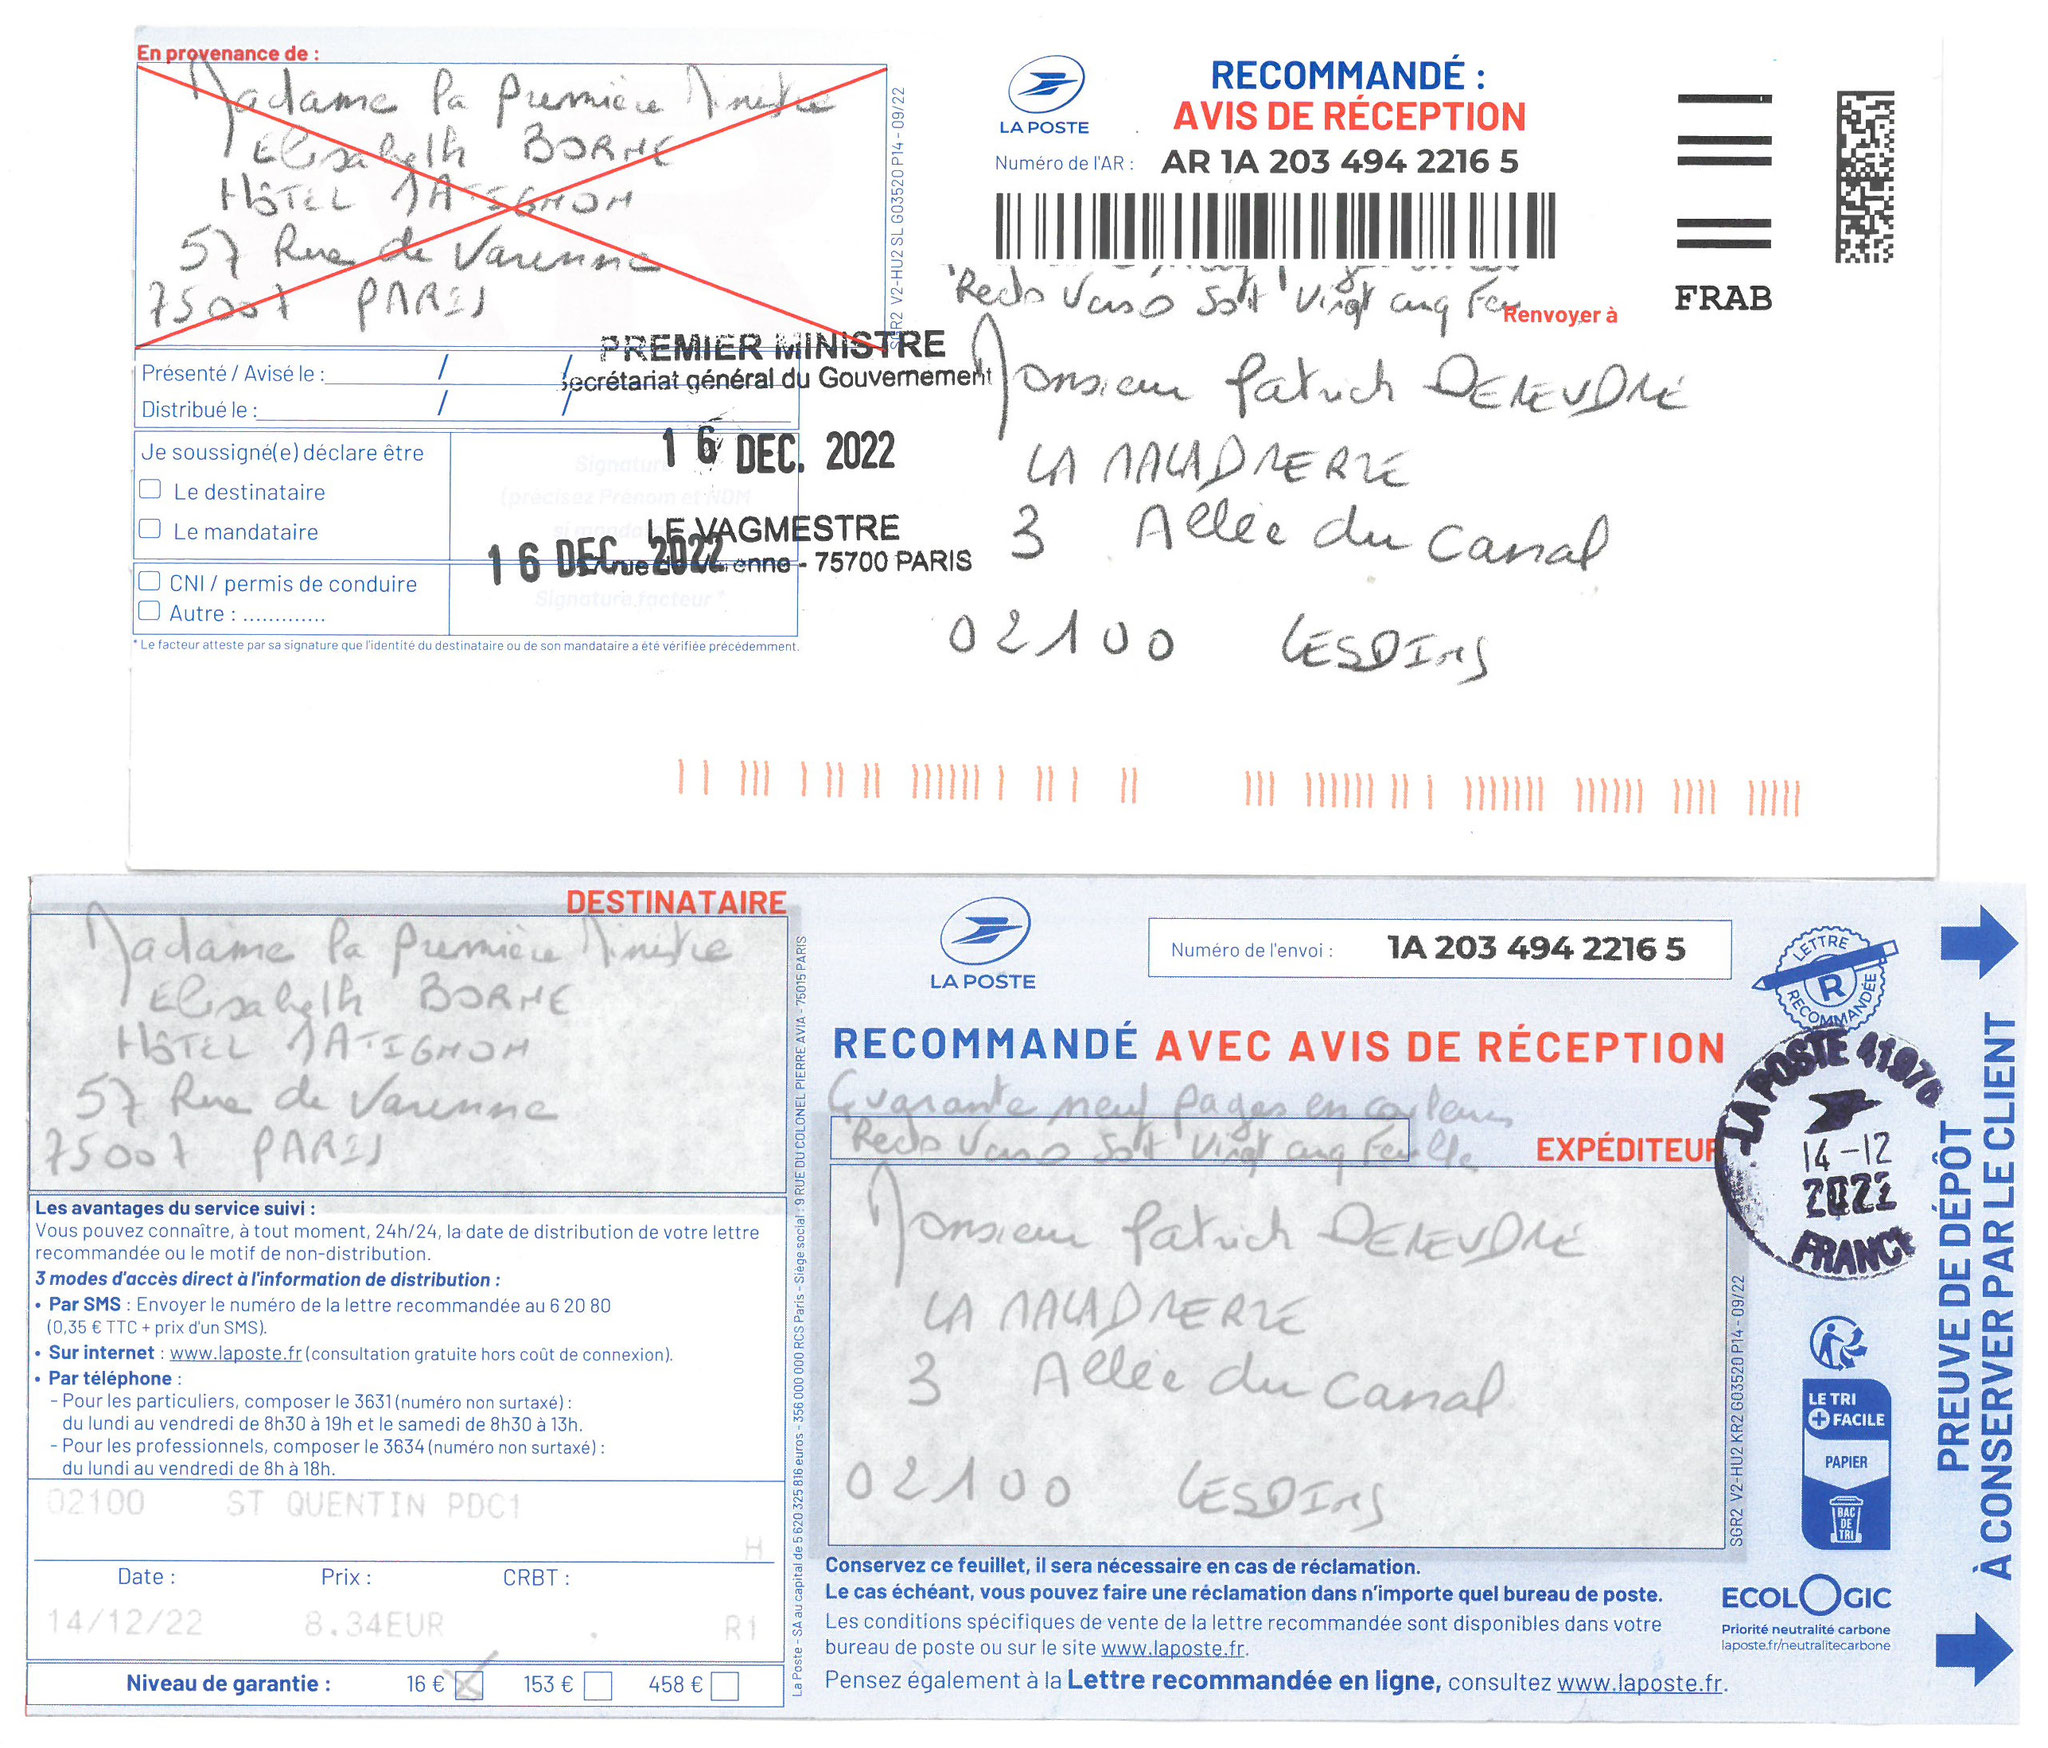 En provenance de :
Madame la Première Ministre
Elisabelh BORNE
HÔTEL MATIGNON
57 Rue de Varenne
75007 PARIS
SGR2 V2-HU2 SL G03520 P14 - 09/22
LA POSTE
RECOMMANDÉ :
AVIS DE RÉCEPTION
Numéro de l'AR : AR 1A 203 494 2216 5
FRAB
Recto Verso Soit Vingt cinq Feu
Renvoyer à
Monsieur Patrick DEREUDRE
LA MALADRERIE
3 Allée du Canal
02100 LESDINS
Présenté / Avisé le : / /
Distribué le : / /
PREMIER MINISTRE
Secrétariat général du Gouvernement
16 DEC. 2022
LE VAGMESTRE
16 DEC. 2022
rue de enne - 75700 PARIS
Je soussigné(e) déclare être
Le destinataire
Le mandataire
Signature
(précisez Prénom et NOM
si manda
CNI / permis de conduire
Autre : .............
Signature facteur *
* Le facteur atteste par sa signature que l'identité du destinataire ou de son mandataire a été vérifiée précédemment.
DESTINATAIRE
Madame la Première Ministre
Elisabelh BORNE
HÔTEL MATIGNON
57 Rue de Varenne
75007 PARIS
Les avantages du service suivi :
Vous pouvez connaître, à tout moment, 24h/24, la date de distribution de votre lettre
recommandée ou le motif de non-distribution.
3 modes d'accès direct à l'information de distribution :
• Par SMS : Envoyer le numéro de la lettre recommandée au 6 20 80
(0,35 € TTC + prix d'un SMS).
• Sur internet : www.laposte.fr (consultation gratuite hors coût de connexion).
• Par téléphone :
- Pour les particuliers, composer le 3631 (numéro non surtaxé) :
du lundi au vendredi de 8h30 à 19h et le samedi de 8h30 à 13h.
- Pour les professionnels, composer le 3634 (numéro non surtaxé) :
du lundi au vendredi de 8h à 18h.
02100 ST QUENTIN PDC1
H
Date : Prix : CRBT :
14/12/22 8.34EUR . R1
Niveau de garantie : 16 € 153 € 458 €
La Poste - SA au capital de 5 620 325 816 euros - 356 000 000 RCS Paris - Siège social : 9 RUE DU COLONEL PIERRE AVIA - 75015 PARIS
LA POSTE
Numéro de l'envoi : 1A 203 494 2216 5
LETTRE RECOMMANDÉE
R
RECOMMANDÉ AVEC AVIS DE RÉCEPTION
Quarante neuf pages en couleurs
Recto Verso Soit Vingt cinq Feuille
EXPÉDITEUR
Monsieur Patrick DEREUDRE
LA MALADRERIE
3 Allée du Canal
02100 LESDINS
SGR2 V2-HU2 KR2 G03520 P14 - 09/22
Conservez ce feuillet, il sera nécessaire en cas de réclamation.
Le cas échéant, vous pouvez faire une réclamation dans n'importe quel bureau de poste.
Les conditions spécifiques de vente de la lettre recommandée sont disponibles dans votre
bureau de poste ou sur le site www.laposte.fr.
Pensez également à la Lettre recommandée en ligne, consultez www.laposte.fr.
LA POSTE 41976
14-12
2022
FRANCE
LE TRI
+ FACILE
PAPIER
BAC
DE
TRI
ECOLOGIC
Priorité neutralité carbone
laposte.fr/neutralitecarbone
PREUVE DE DÉPÔT
À CONSERVER PAR LE CLIENT